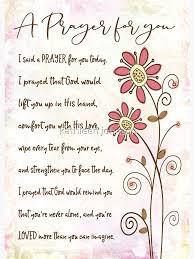 A Prayer for you
I said a PRAYER for you today,
I prayed that God would
lift you up in His hand,
comfort you with His Love,
wipe every tear from your eye,
and strengthen you to face the day.
I prayed that God would remind you
that you're never alone, and you're
LOVED more than you can imagine.